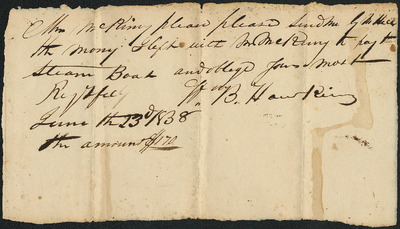 Mr McKiny please please send me by the
the mony I left with Mr McKiny to pay the
Steam Boat and oblege your most
Respfely
B. Hawkins
June the 23d 1838
the amount $170